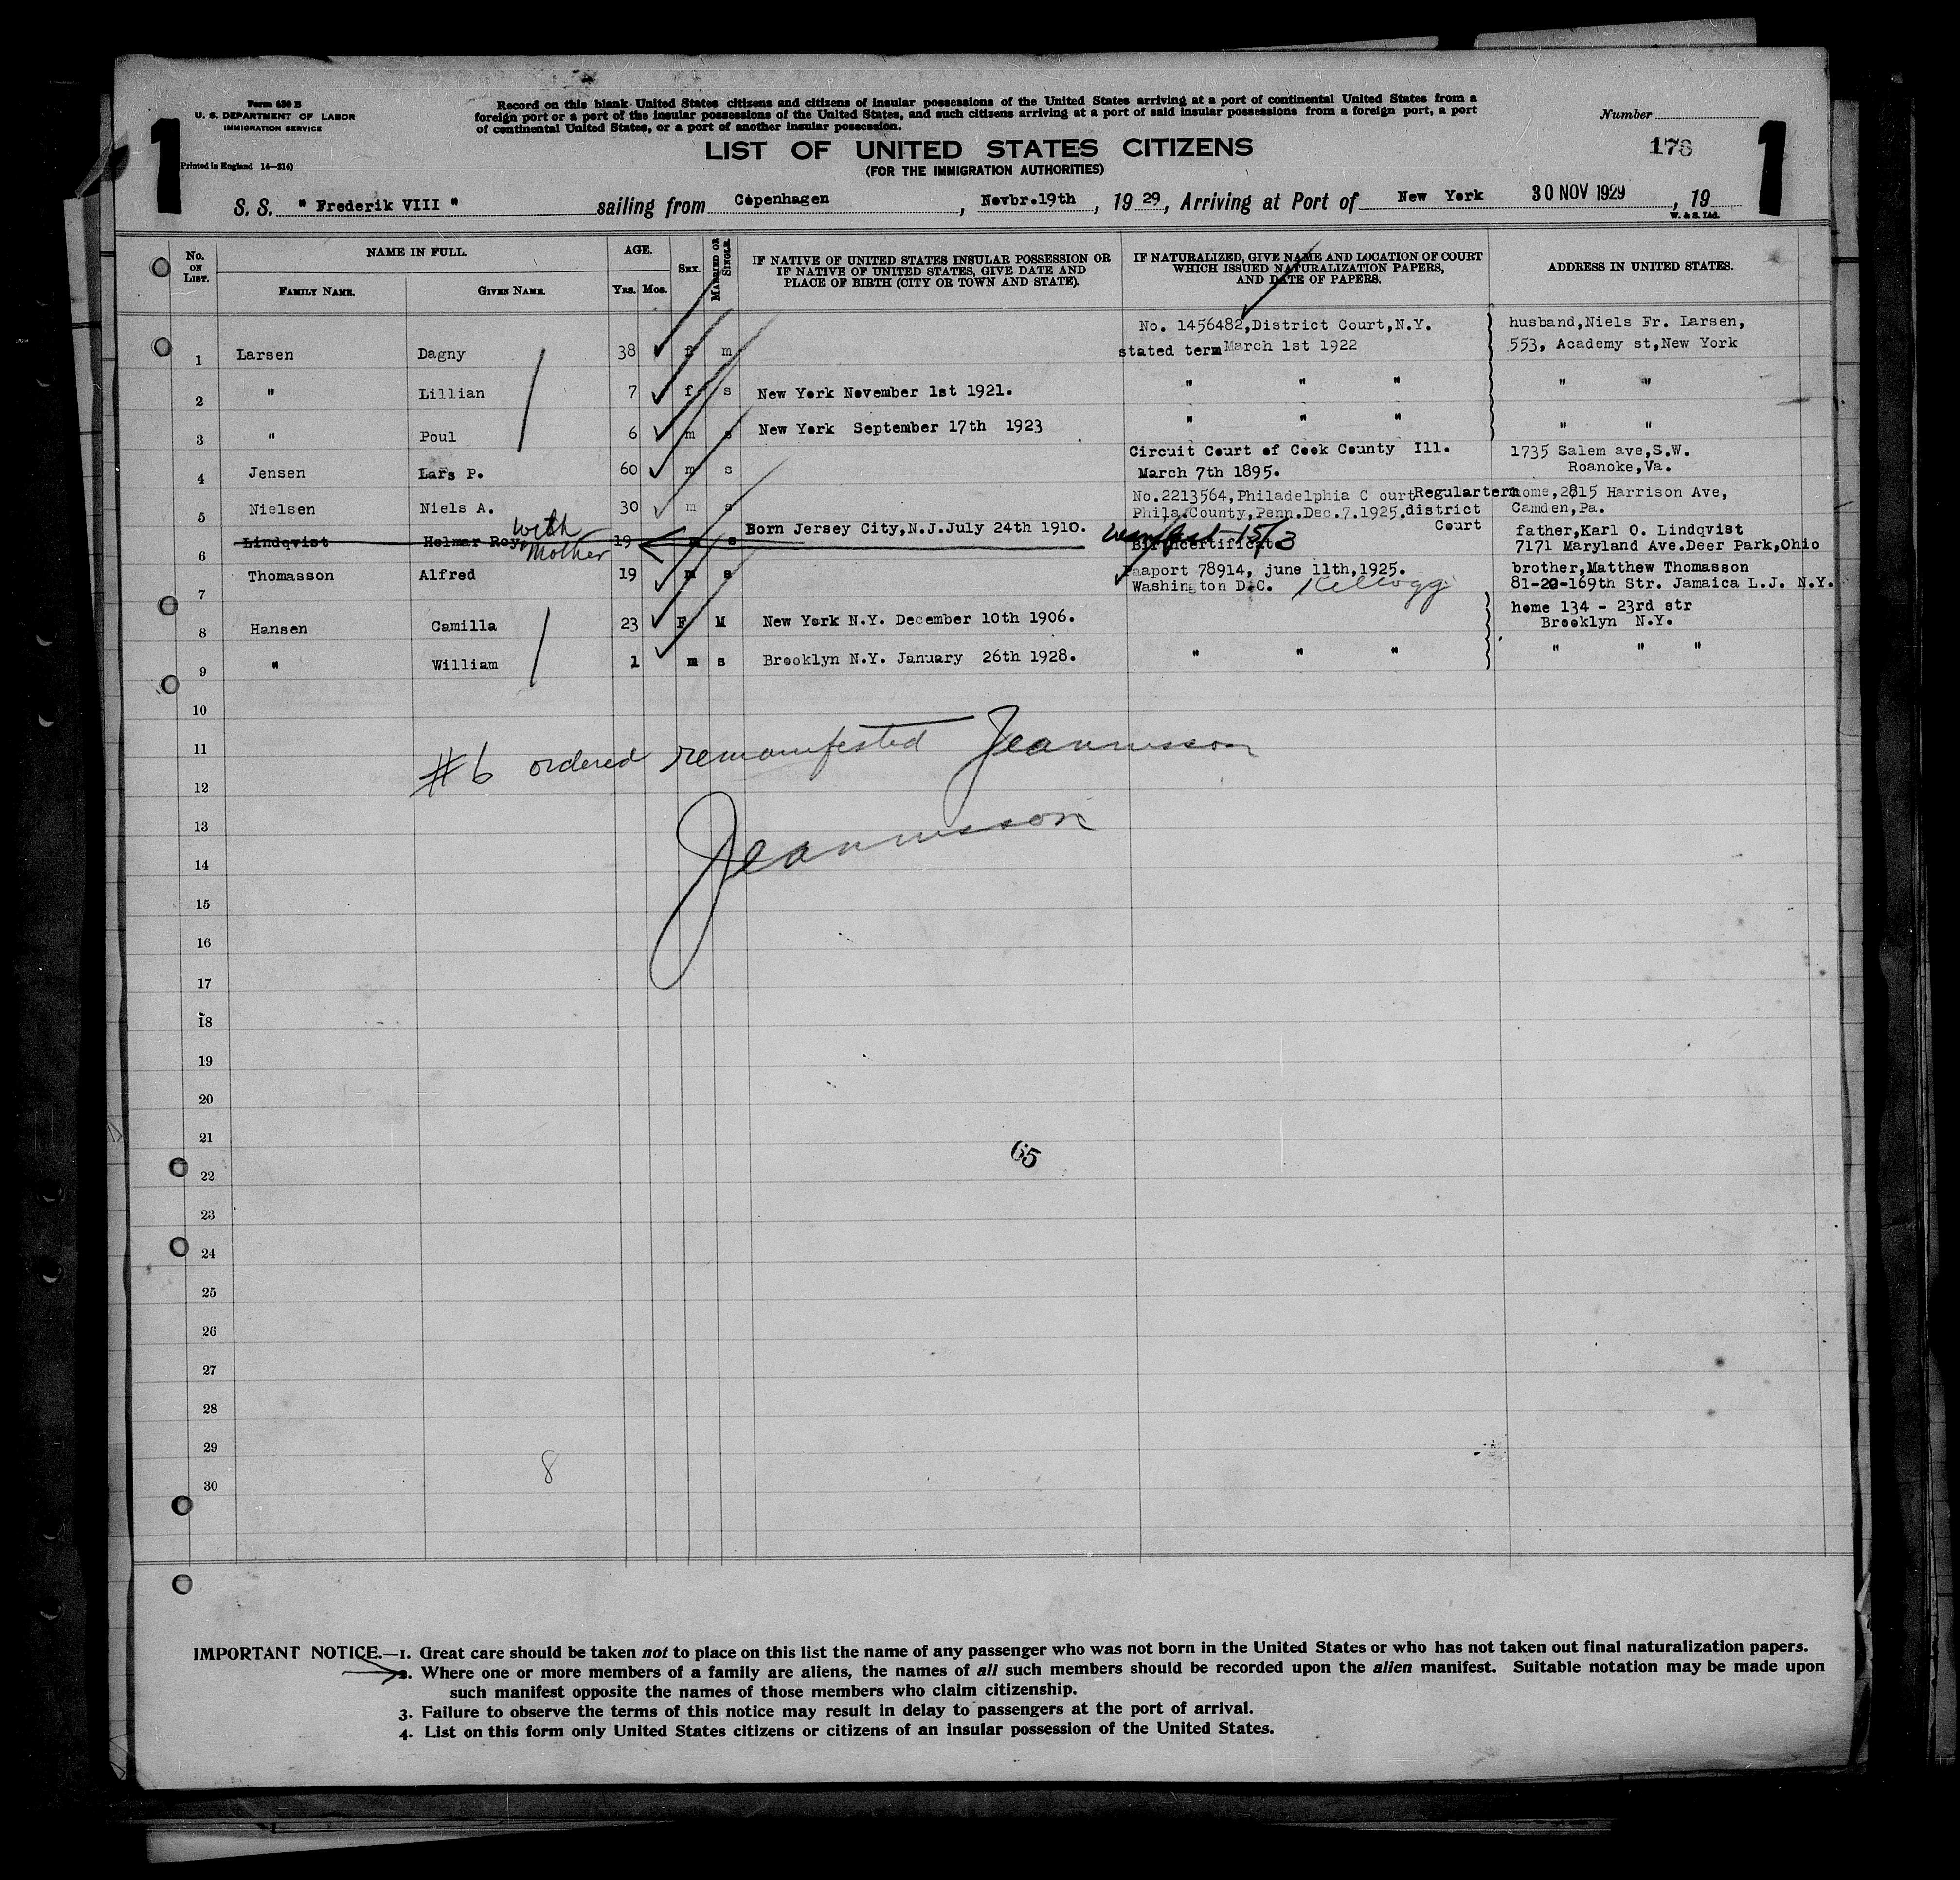 Form 630 B
U. S. DEPARTMENT OF LABOR
IMMIGRATION SERVICE
(Printed in England 14—214)
1
Record on this blank United States citizens and citizens of insular possessions of the United States arriving at a port of continental United States from a
foreign port or a port of the insular possessions of the United States, and such citizens arriving at a port of said insular possessions from a foreign port, a port
of continental United States, or a port of another insular possession.
Number
178
1
LIST OF UNITED STATES CITIZENS
(FOR THE IMMIGRATION AUTHORITIES)
S. S. " Frederik VIII " sailing from Copenhagen, Novbr.19th, 19 29, Arriving at Port of New York 30 NOV 1929, 19
W. & S. Ltd.
No. ON LIST. NAME IN FULL. FAMILY NAME. GIVEN NAME. AGE. YRS. MOS. SEX. MARRIED OR SINGLE. IF NATIVE OF UNITED STATES INSULAR POSSESSION OR IF NATIVE OF UNITED STATES, GIVE DATE AND PLACE OF BIRTH (CITY OR TOWN AND STATE). IF NATURALIZED, GIVE NAME AND LOCATION OF COURT WHICH ISSUED NATURALIZATION PAPERS, AND DATE OF PAPERS. ADDRESS IN UNITED STATES.
No. 1456482,District Court,N.Y. husband,Niels Fr. Larsen,
1 Larsen Dagny 38 f m stated term March 1st 1922 553, Academy st,New York
2 " Lillian 7 f s New York November 1st 1921. " " " " "
3 " Poul 6 m s New York September 17th 1923 " " " " "
Circuit Court of Cook County Ill. 1735 Salem ave,S.W.
4 Jensen Lars P. 60 m s March 7th 1895. Roanoke,Va.
No.2213564,Philadelphia C ourt Regularterm home,2815 Harrison Ave,
5 Nielsen Niels A. 30 m s Phila.County,Penn.Dec.7.1925.district Court Camden,Pa.
with Mother
6 Lindqvist Helmar Roy, 19 m s Born Jersey City,N.J.July 24th 1910. Birthcertificate 15/3 father,Karl O. Lindqvist
7171 Maryland Ave.Deer Park,Ohio
7 Thomasson Alfred 19 m s Paaport 78914, june 11th,1925. brother,Matthew Thomasson
Washington D.C. Kellogg 81-20-169th Str. Jamaica L.J. N.Y.
home 134 - 23rd str
8 Hansen Camilla 23 F M New York N.Y. December 10th 1906. Brooklyn N.Y.
9 " William 1 m s Brooklyn N.Y. January 26th 1928. " " " " " "
10
11
#6 ordered remanifested Jeannisson
12
13
Jeannisson
14
15
16
17
18
19
20
21
65
22
23
24
25
26
27
28
29
8
30
IMPORTANT NOTICE.—1. Great care should be taken not to place on this list the name of any passenger who was not born in the United States or who has not taken out final naturalization papers.
2. Where one or more members of a family are aliens, the names of all such members should be recorded upon the alien manifest. Suitable notation may be made upon
such manifest opposite the names of those members who claim citizenship.
3. Failure to observe the terms of this notice may result in delay to passengers at the port of arrival.
4. List on this form only United States citizens or citizens of an insular possession of the United States.